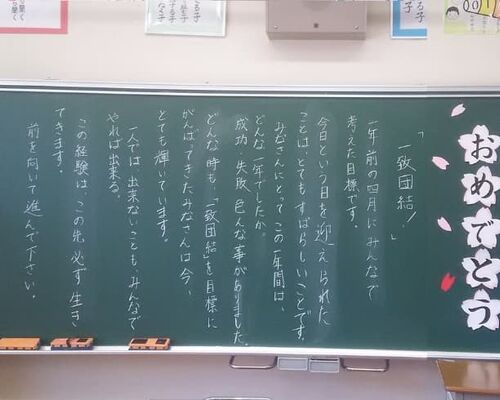 おめでとう
「一致団結！」
一年前の四月にみんなで
考えた目標です。
今日という日を迎えられた
ことは、とてもすばらしいことです。
みなさんにとってこの一年間は、
どんな一年でしたか。
成功、失敗、色んな事がありました。
どんな時も、「一致団結」を目標に
がんばってきたみなさんは今、
とても輝いています。
一人では出来ないことも、みんなで
やれば出来る。
この経験は、この先必ず生き
てきます。
前を向いて進んで下さい。